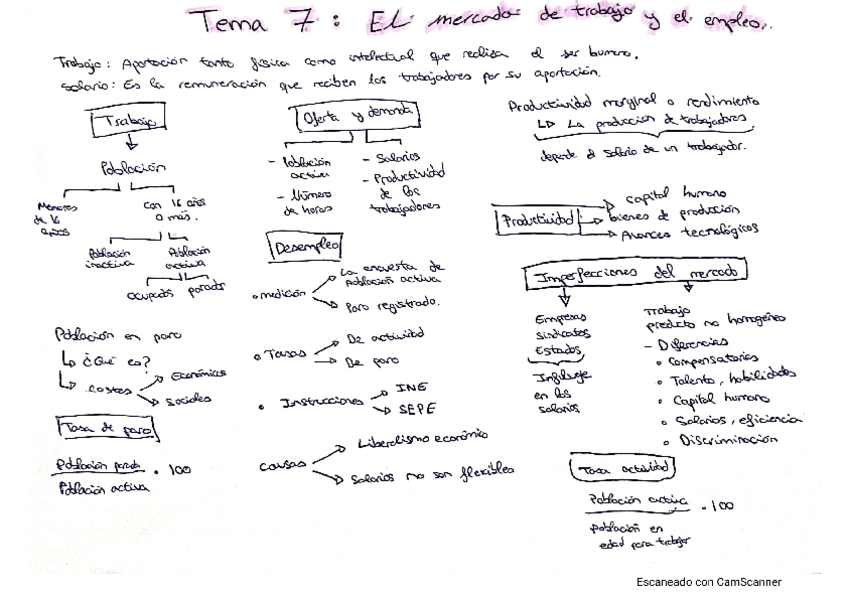 Tema 7: El mercado de trabajo y el empleo.
Trabajo: Aportación tanto física como intelectual que realiza el ser humano.
Salario: Es la remuneración que reciben los trabajadores por su aportación.
Trabajo
Población
Menores
de 16
años
Con 16 años
o más.
Población
inactiva
Población
activa
Ocupados parados
Población en paro
¿Qué es?
Costes
Económicos
Sociales
Tasa de paro
Población parada . 100
Población activa
Oferta y demanda
- Población
activa
- Número
de horas
- Salarios
- Productividad
de los
trabajadores
Desempleo
medición
La encuesta de
Población activa
Paro registrado.
Tasas
De actividad
De paro
Instrucciones
INE
SEPE
Causas
Liberalismo económio
Salarios no son flexibles
Productividad marginal o rendimiento
La producción de trabajadores
depende el salario de un trabajador.
Productividad
capital humano
bienes de producción
Avances tecnológicos
Imperfecciones del mercado
Empresas
sindicatos
Estados
Influye
en los
salarios
Trabajo
producto no homogéneo
- Diferencias
Compensatorias
Talento, habilidades
Capital humano
Salarios, eficiencia
Discriminación
Tasa actividad
Población activa . 100
Población en
edad para trabajar
Escaneado con CamScanner